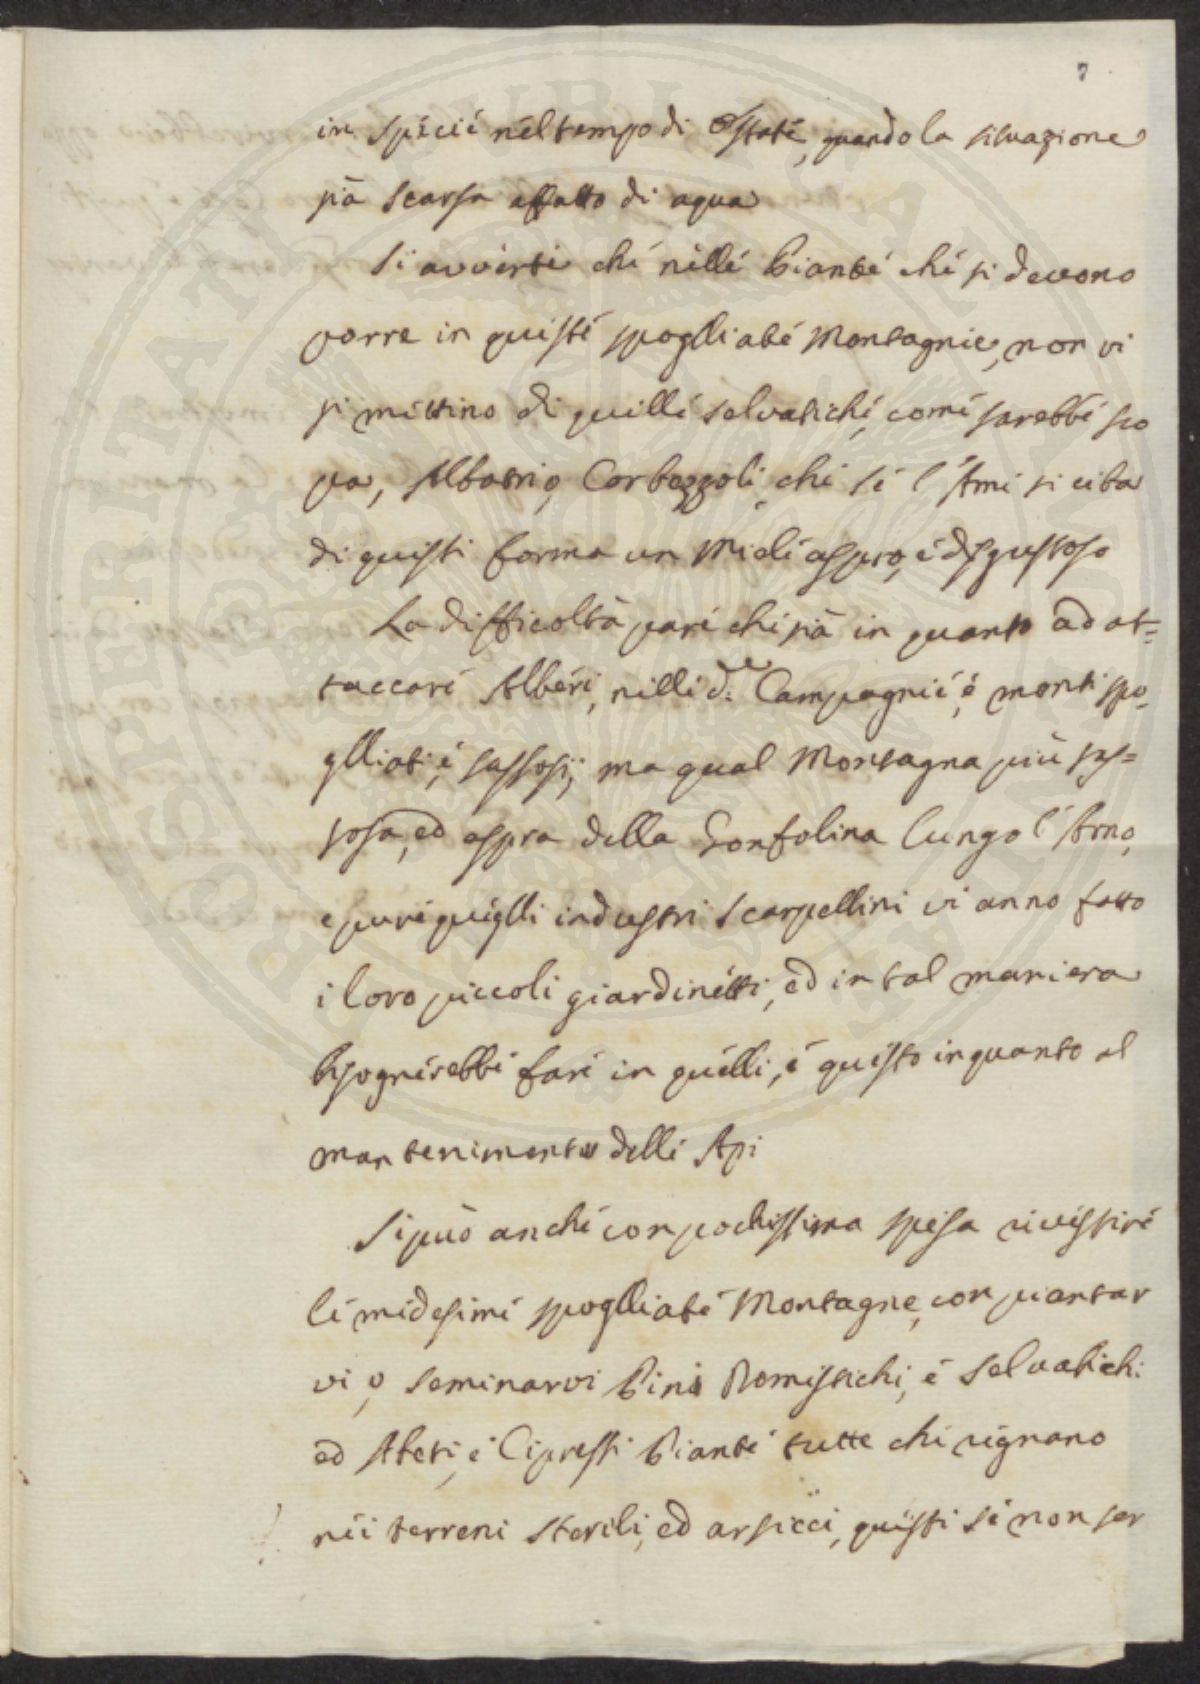 7
in specie nel tempo di Estate, quando la situazione
sia scarsa affatto di aqua
Si avverte che nelle Piante che si devono
porre in queste spogliate Montagnie, non vi
si mettino di quelle selvatiche, come sarebbe sco
pa, Albatrio, Corbezzoli, che se l'Ami si ciba
di questi forma un Miele aspro, e disgustoso
La difficoltà pare che sia in quanto ad at=
taccare Alberi, nelle d.e Campagnie, e monti spo,
glliati, e sassosi; ma qual Montagna più sas=
sosa, ed aspra della Gonfolina lungo l'Arno,
e pure quiglli industri Scarpellini vi anno fatto
i loro piccoli giardinetti, ed in tal maniera
bisognerebbe fare in quelli, e questo in quanto al
mantenimento delle Api
Si può anche con pochissima spesa rivestire
le medesime spoglliate Montagne, con piantar
vi, o seminarvi Pini Domestichi, e Selvatichi
ed Abeti, e Cipressi Piante tutte che regnano
nei terreni sterili, ed arsicci, questi se non ser
PROSPERITATI PUBLICAE